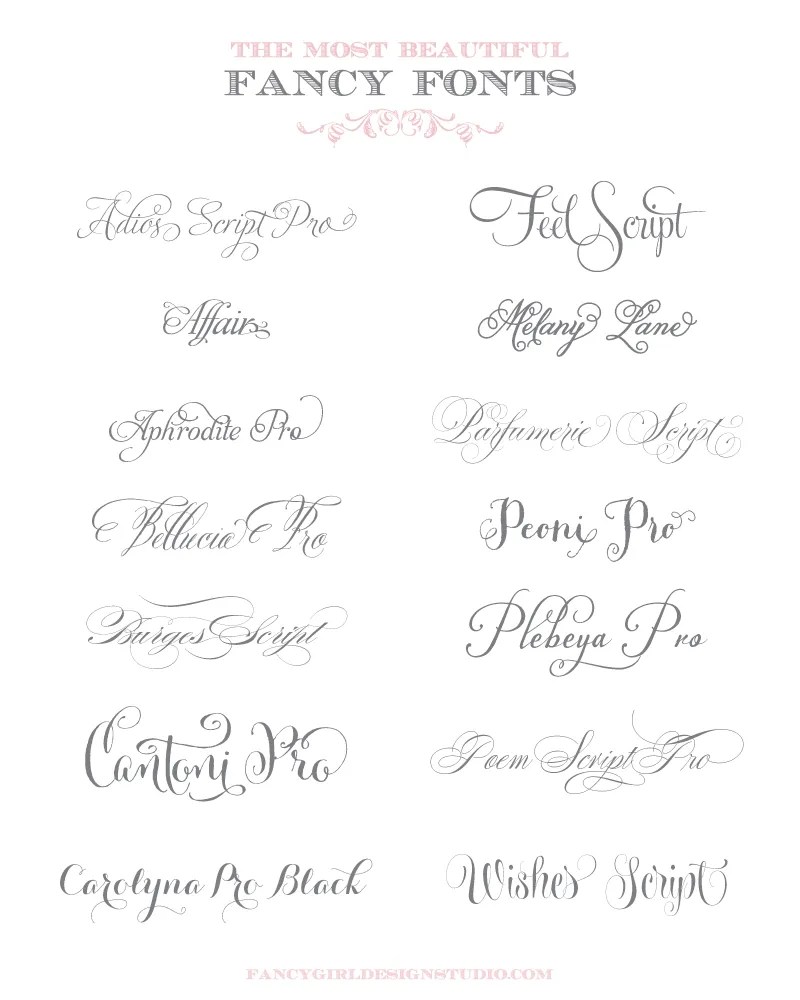 THE MOST BEAUTIFUL
FANCY FONTS
Adios Script Pro
Feel Script
Affair
Melany Lane
Aphrodite Pro
Parfumerie Script
Bellucia Pro
Peoni Pro
Burges Script
Plebeya Pro
Cantoni Pro
Poem Script Pro
Carolyna Pro Black
Wishes Script
FANCYGIRLDESIGNSTUDIO.COM